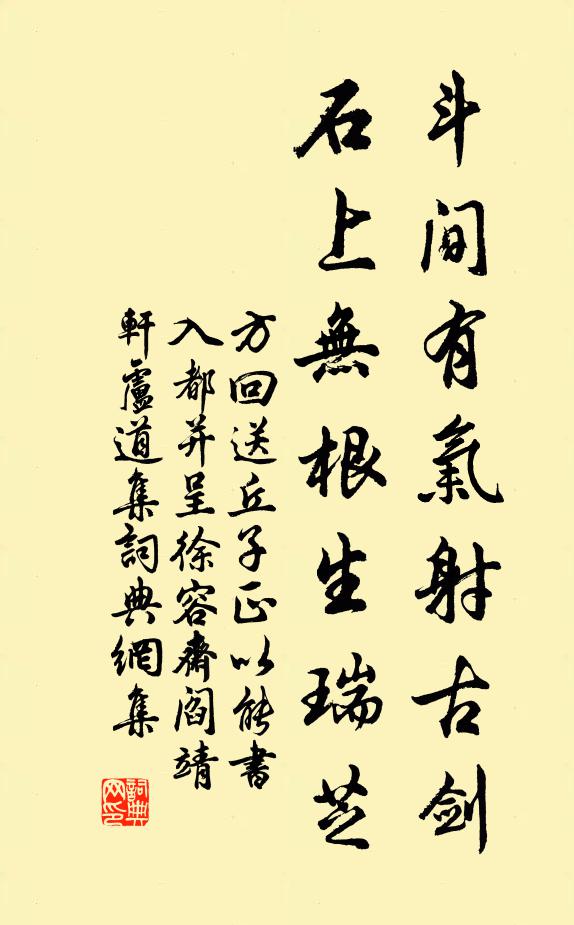 斗間有氣射古劍
石上無根生瑞芝
方回送丘子正以能書
入都并呈徐容齋閻靖
軒盧道集詞典網集
詞典網印